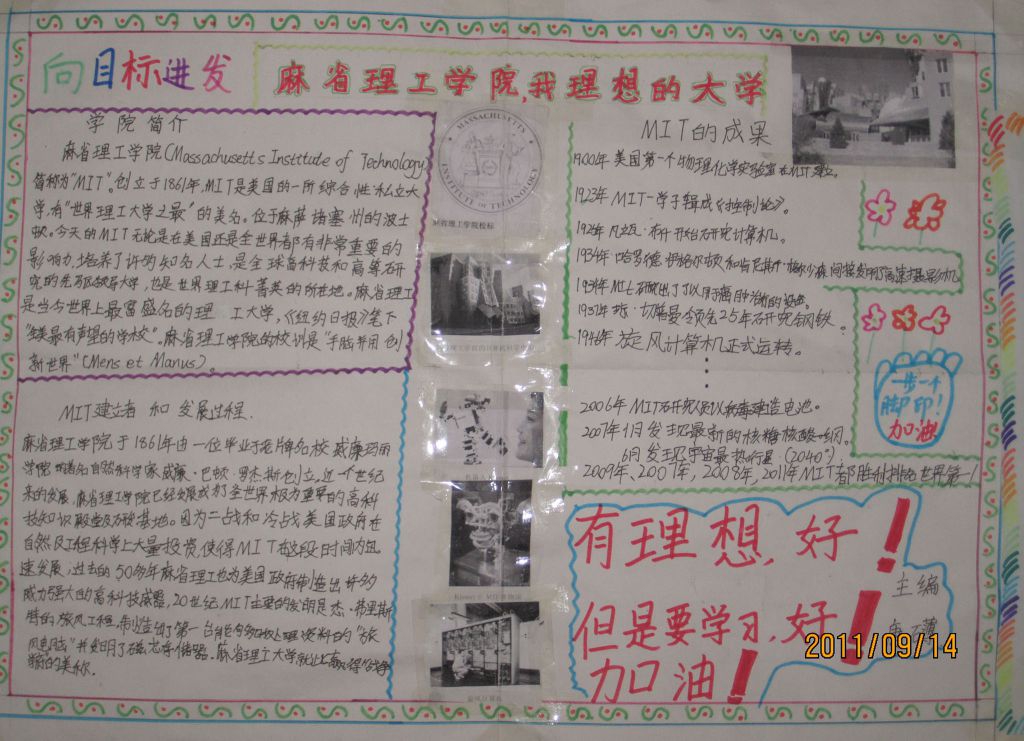 向目标进发
麻省理工学院,我理想的大学
学院简介
麻省理工学院(Massachusetts Institute of Technology)
简称为"MIT"。创立于1861年,MIT是美国的一所综合性私立大
学,有"世界理工大学之最"的美名。位于麻萨诸塞州的波士
顿。今天的MIT无论是在美国还是全世界都有非常重要的
影响力,培养了许多知名人士,是全球高科技和高等研
究的先驱领导大学,也是世界理工科菁英的所在地。麻省理工
是当今世界上最富盛名的理工大学,《纽约日报》笔下
"全美最有声望的学校"。麻省理工学院的校训是"手脑并用 创
新世界"(Mens et Manus)。
MIT建立者 和 发展过程.
麻省理工学院于1861年由一位毕业于老牌名校威廉玛丽
学院的著名自然科学家威廉·巴顿·罗杰斯创立,近一个世纪
来的发展,麻省理工学院已经发展成为了全世界极为重要的高科
技知识殿堂及研发基地。因为二战和冷战美国政府在
自然及工程科学上大量投资,使得MIT在这段时间内迅
速发展,过去的50多年麻省理工也为美国政府制造出许多
威力强大的高科技武器,20世纪MIT主要的发明是杰·弗里斯
特的旋风工程,制造出了第一台能够实时处理资料的"旋
风电脑"并发明了磁芯存储器。
的美称.
MASSACHUSETTS
INSTITUTE OF TECHNOLOGY
麻省理工学院校标
MIT的成果
1900年 美国第一个物理化学实验室在MIT建立。
1923年 MIT一学子辑成《控制论》。
1928年 凡瓦·布什开始研究计算机。
1934年 哈罗德·伊格尔顿和肯尼斯·格尔少森间接发明了高速摄影机
2006年 MIT研究人员以病毒建造电池。
2007年1月 发现最新的核糖核酸纲。
6月 发现宇宙最热行星(2040°)
2009年,2007年,2008年,2011年MIT都胜利排名世界第一!
1946年 旋风计算机正式运转。
一步一个
脚印!
加油
有理想,好!
但是要学习,好!
加油!
主编
2011/09/14